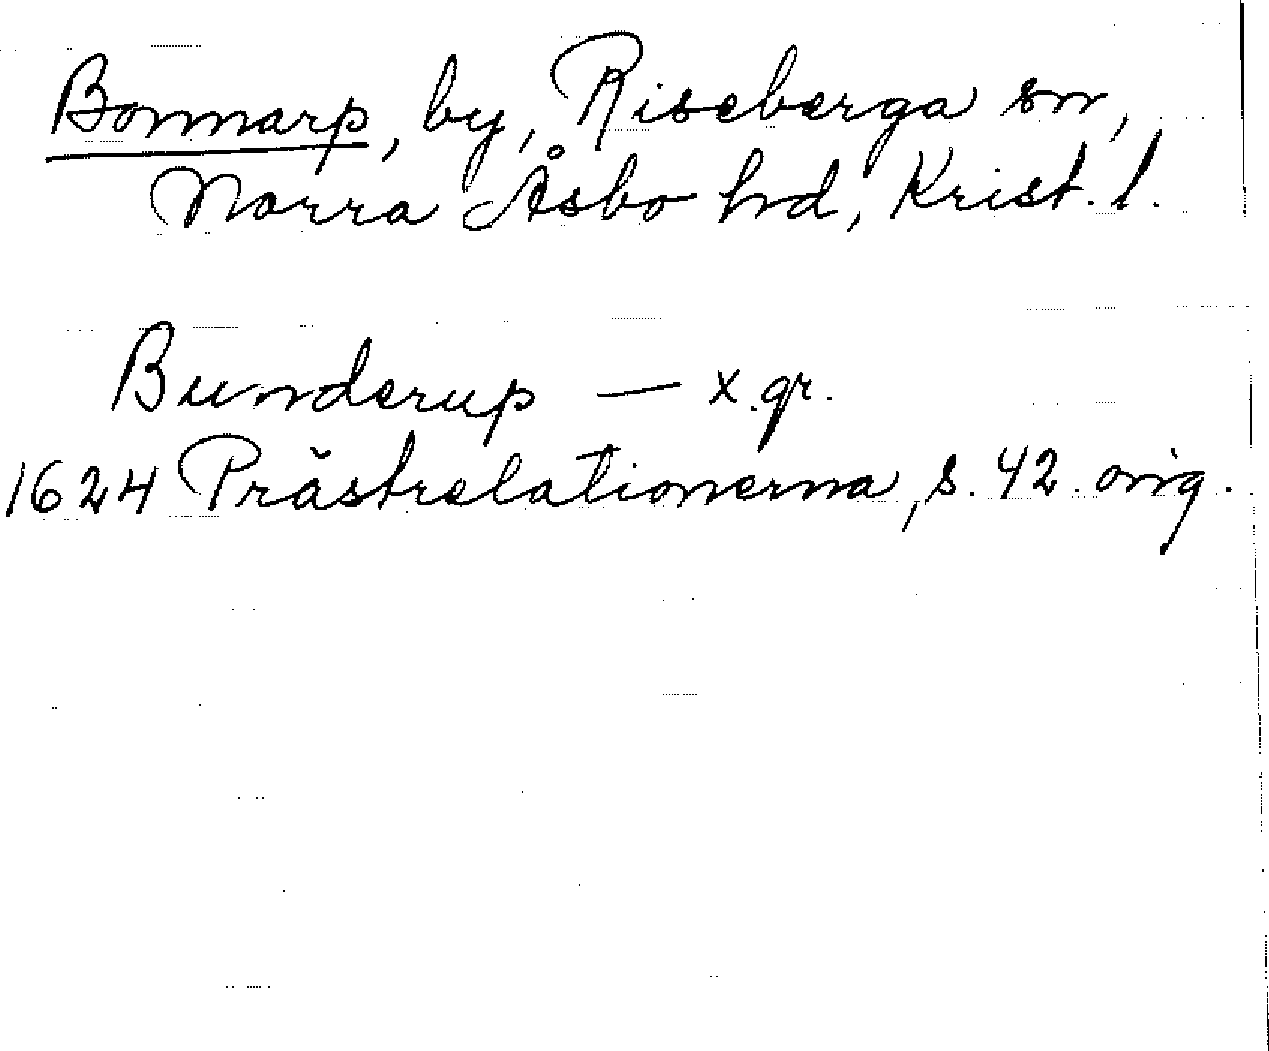 Bonnarp, by, Riseberga sn,
Norra Åsbo hd, Krist. l.
Bunderup — x. gr.
1624 Prästrelationerna, s. 42. orig.